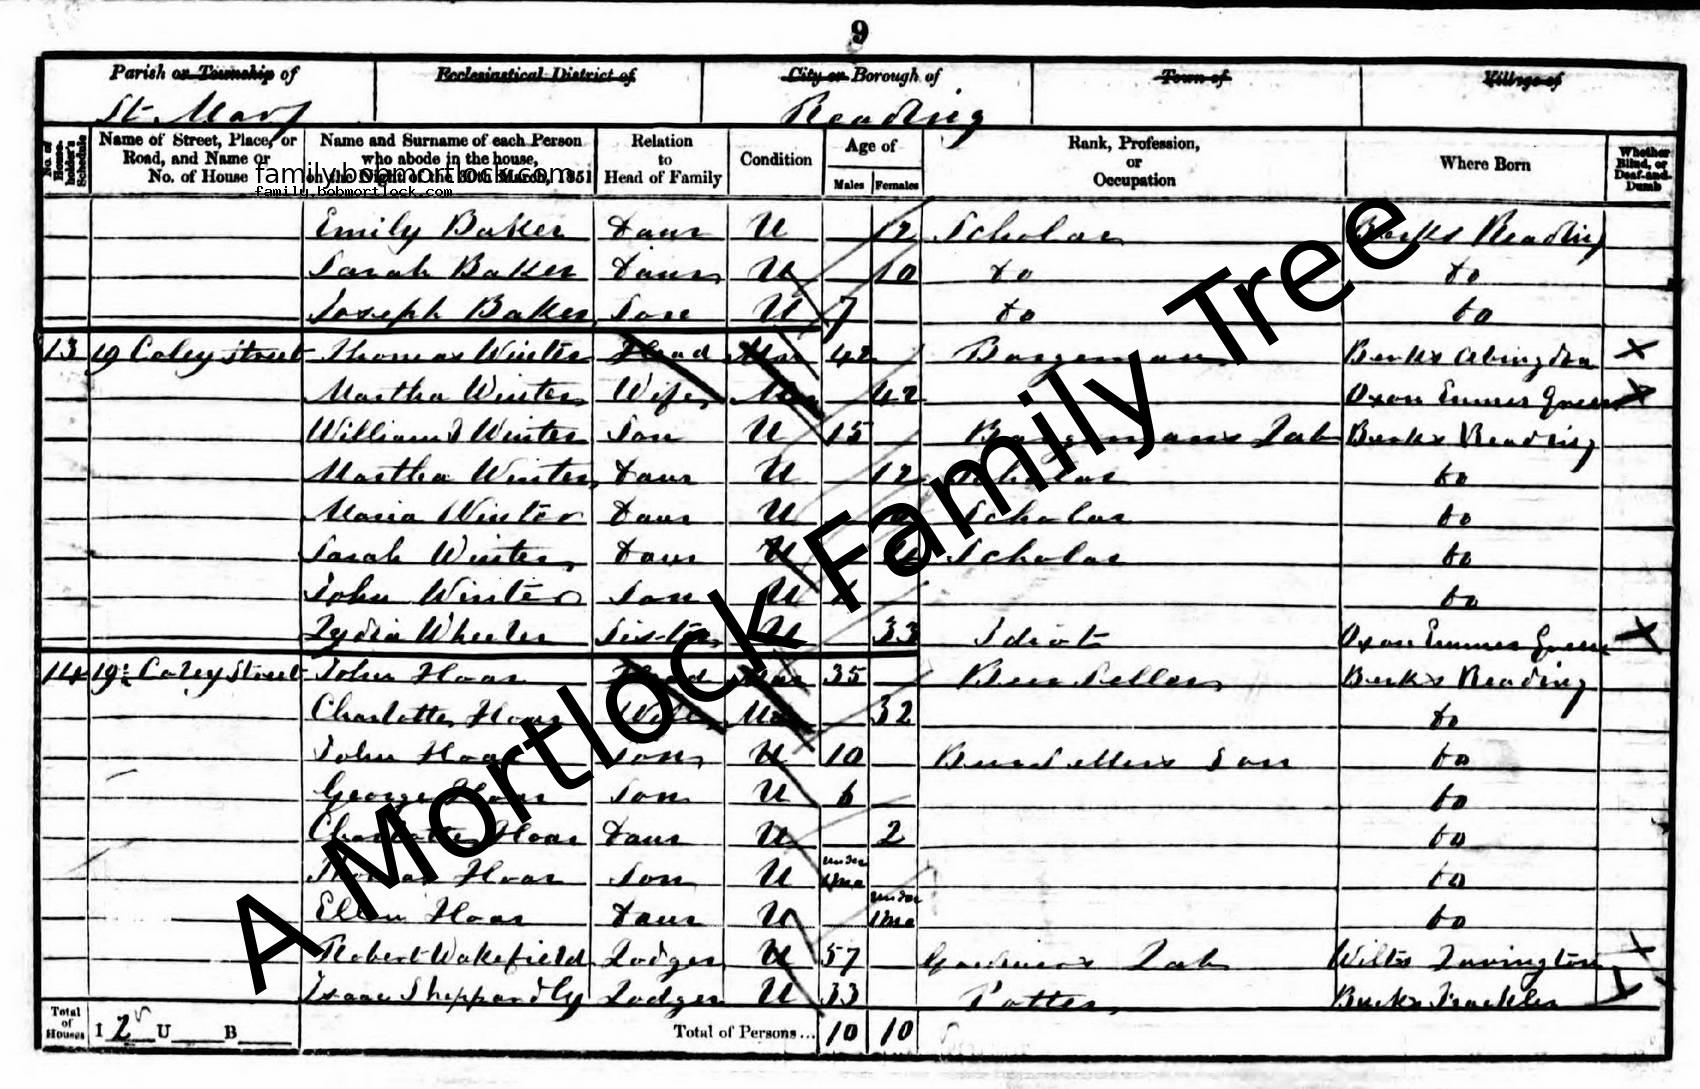 9
Parish or Township of
Ecclesiastical District of
City or Borough of
Town of
Village of
St. Mary
Reading
No. of House-holder's Schedule
Name of Street, Place, or Road, and Name or No. of House
Name and Surname of each Person who abode in the house, on the Night of the 30th March, 1851
Relation to Head of Family
Condition
Age of
Males
Females
Rank, Profession, or Occupation
Where Born
Whether Blind, or Deaf-and-Dumb
familybobmortlock.com
family.bobmortlock.com
Emily Baker Daur U 12 Scholar Berks Reading
Sarah Baker Daur U 10 do do
Joseph Baker Son U 7 do do
13 19 Coley Street Thomas Winter Head Mar 42 Bargeman Berks Abingdon
Martha Winter Wife Mar 42 Oxon Emmer Green
William J Winter Son U 15 Bargeman's Lab Berks Reading
Martha Winter Daur U 12 Scholar do
Maria Winter Daur U Scholar do
Sarah Winter Daur U Scholar do
John Winter Son U do
Lydia Wheeler Sister U 33 Idiot Oxon Emmer Green
14 19 Coley Street John Hoar Head Mar 35 Beer Seller Berks Reading
Charlotte Hoar Wife Mar 32 do
John Hoar Son U 10 Beer Sellers Son do
George Hoar Son U 6 do
Charlotte Hoar Daur U 2 do
Thomas Hoar Son U under do
Ellen Hoar Daur U under do
Robert Wakefield Lodger U 57 Lab Wilts
Isaac Lodger U 33 Potter
Total of Houses I 2 U B
Total of Persons... 10 10
A Mortlock Family Tree